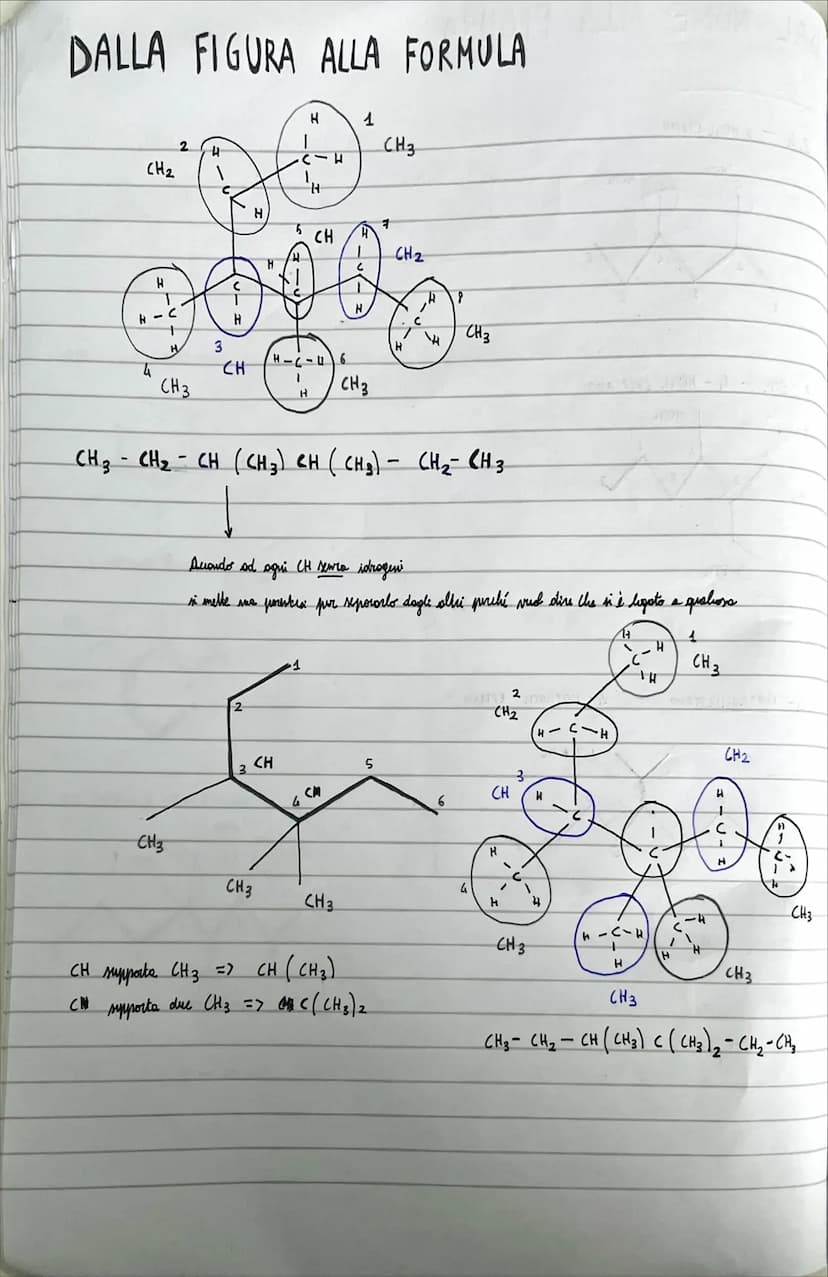 DALLA FIGURA ALLA FORMULA
H 1
2 H C - H CH3
CH2 C H
H
5 CH H 7
H H C CH2
H C C H H 8
H - C H H C CH3
H 3 H - C - H 6 H H
4 CH H CH3
CH3
CH3 - CH2 - CH (CH3) CH (CH3) - CH2 - CH3
Quando ad ogni CH senza idrogeni
si mette una parentesi per separarlo dagli altri perché vuol dire che si è legato a qualcosa
H H 1
C CH3
H
1
2
3 CH
4
5
6
CH3
CH3
CH3
2
CH2
H - C - H
3
CH H C
CH2
H
C
H
C
H
C
H
H C
H H
4
CH3
H - C - H
H
CH3
C - H
H H
CH3
CH3
CH supporta CH3 => CH (CH3)
supporta due CH3 => C(CH3)2
CH3 - CH2 - CH (CH3) C (CH3)2 - CH2 - CH3